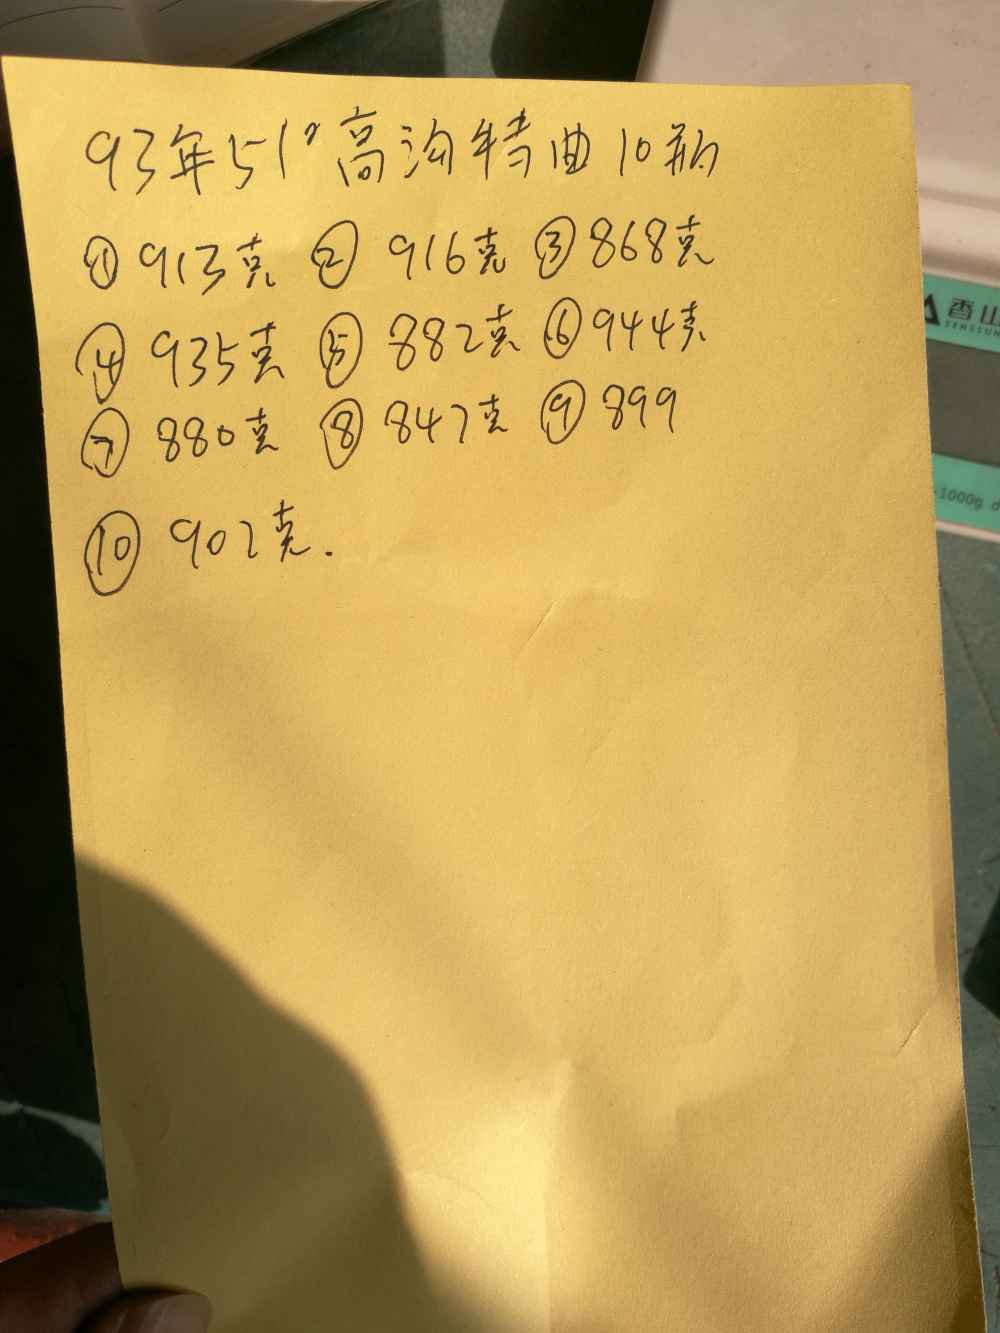 93年51°高沟特曲10瓶
①913克 ②916克 ③868克
④935克 ⑤882克 ⑥944克
⑦880克 ⑧847克 ⑨899
⑩902克.
香山
SENSSUN
-1000g d